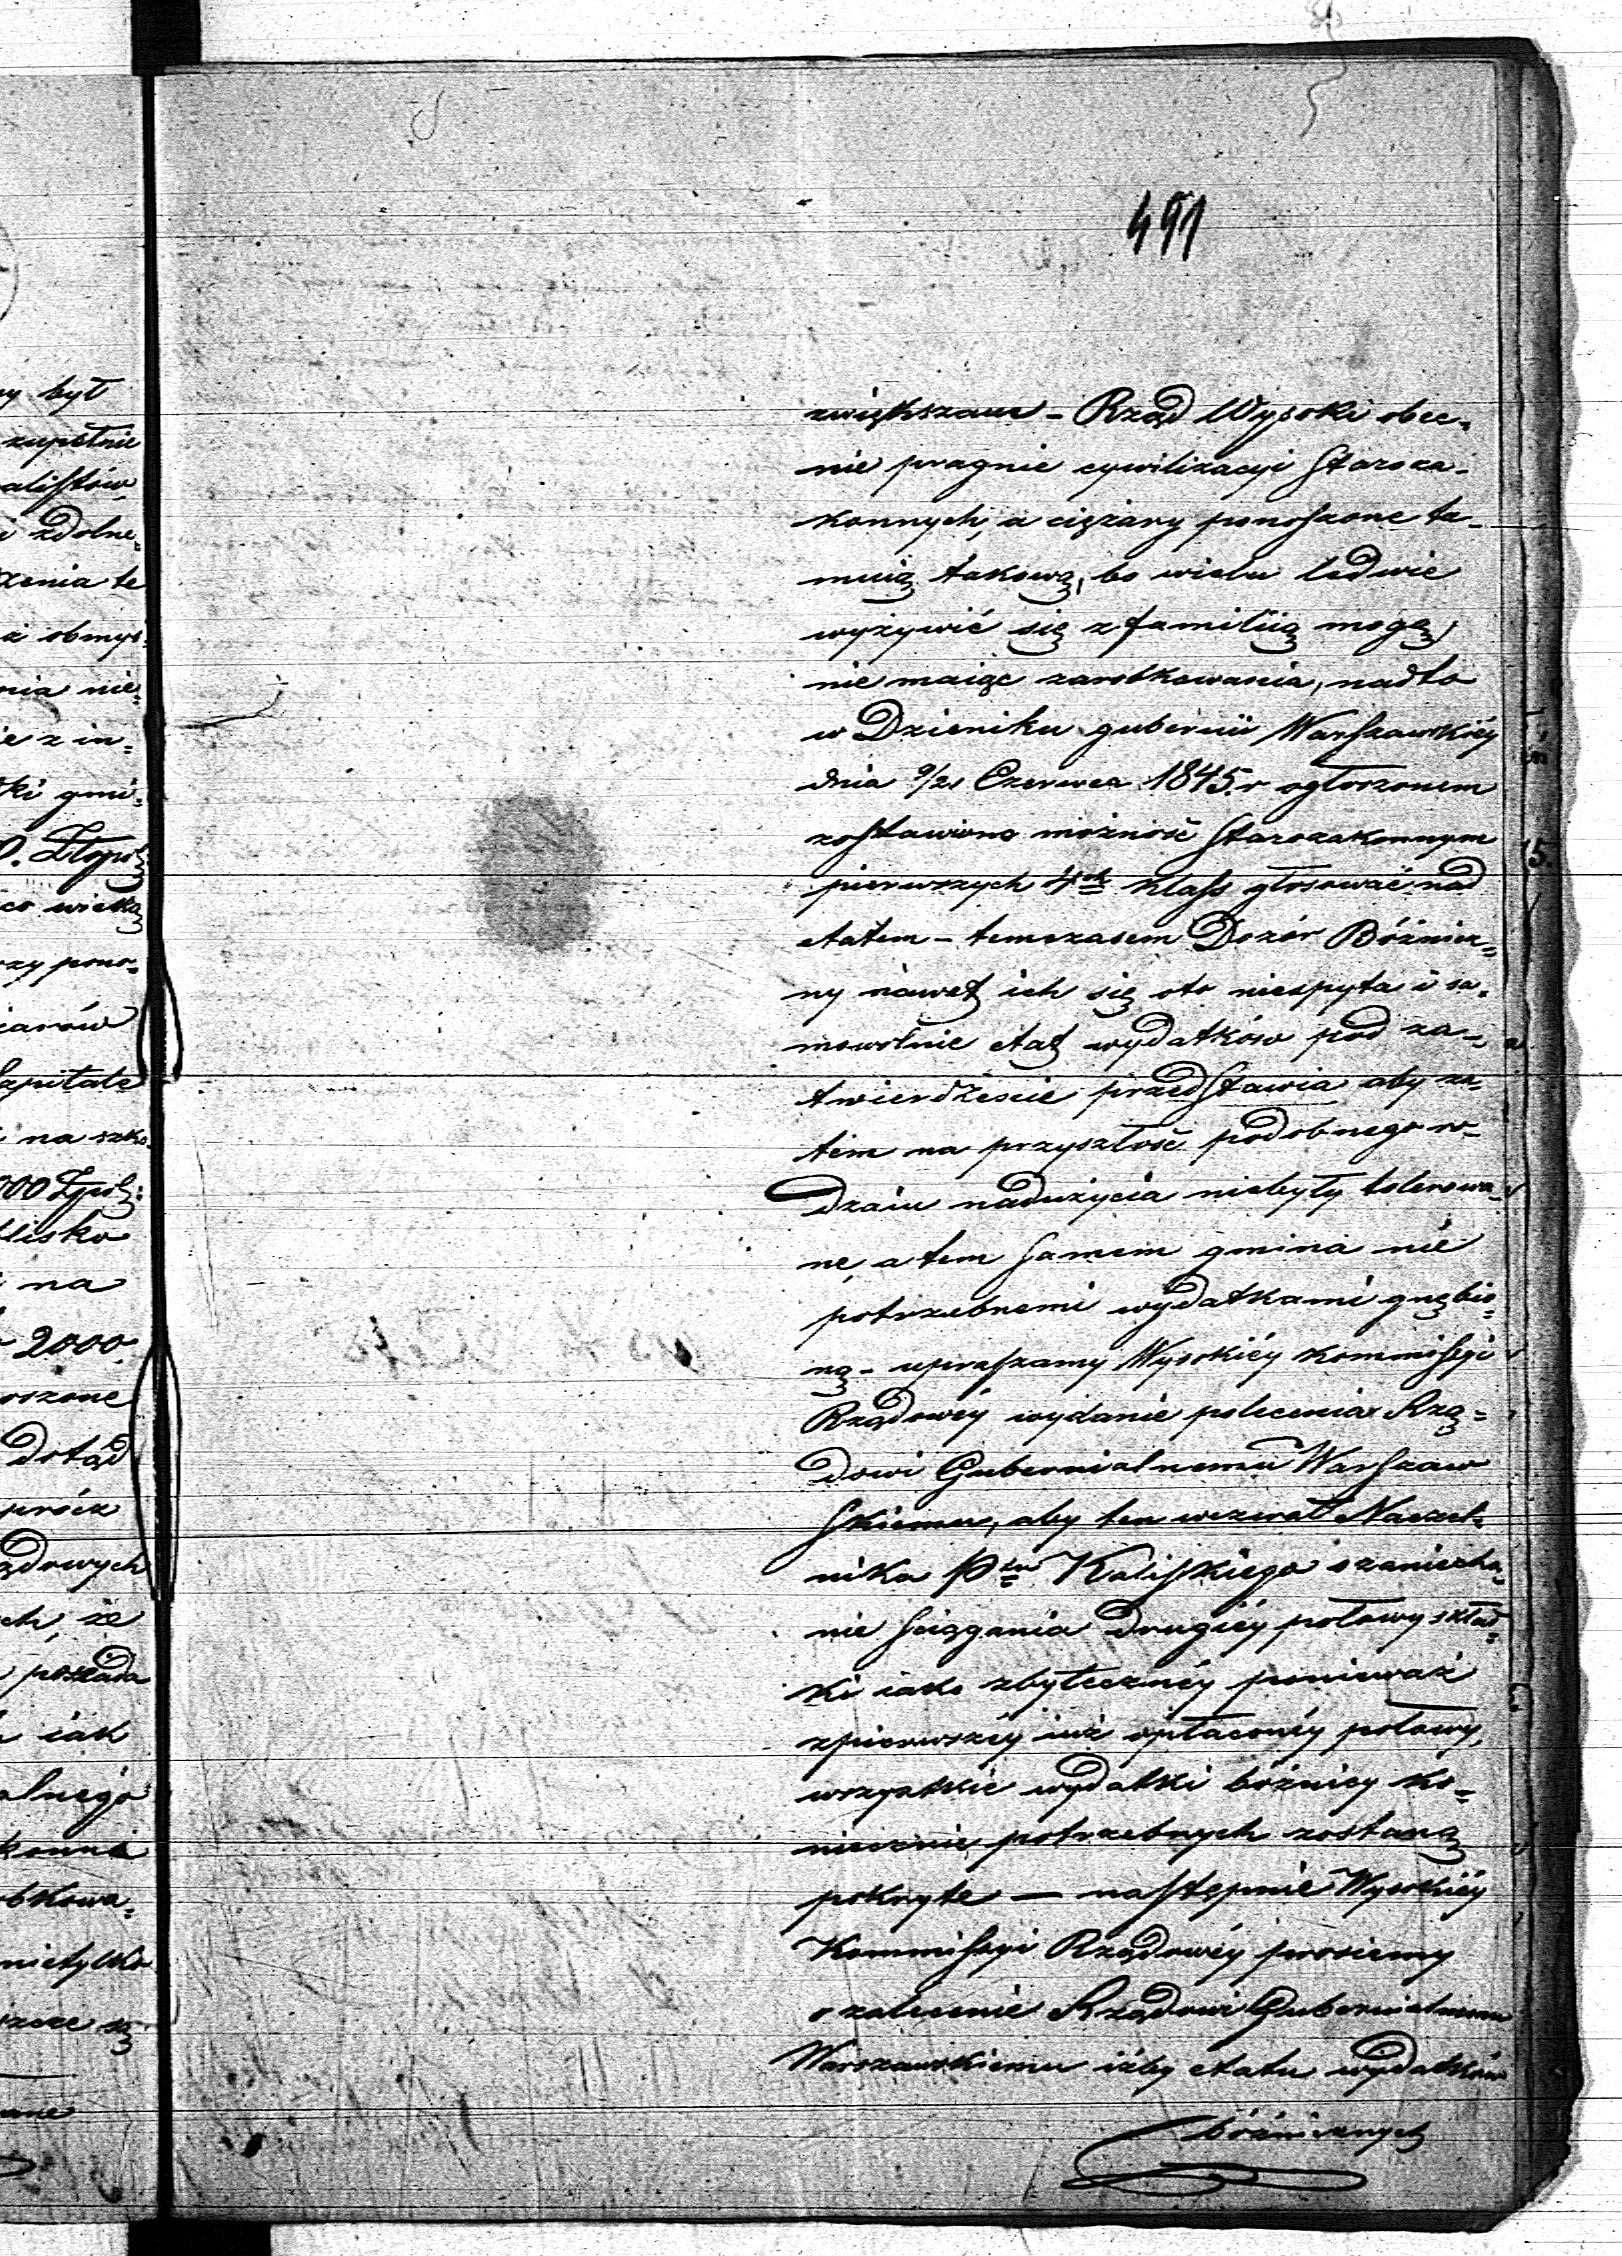 491
zwiększane - Rząd Wysoki obec-
nie pragnie cywilizacyi Staroza-
konnych, a ciężary ponoszone ta-
muią takową, bo wielu ledwie
wyżywić się z familiią mogą,
nie maiąc zarobkowania, nadto
w Dzieniku gubernii Warszawskiéy
dnia 9/21 Czerwca 1845. r ogłoszonem
zostawiono możność Starozakonnym
pierwszych 4ch klass głosować nad
etatem - temczasem Dozór Bóżnicz-
ny nawet ich się oto niespyta i sa-
mowolnie etat wydatków pod za-
twierdzenie przedstawia aby za-
tem na przyszłość podobnego ro-
dzaiu nadużycia niebyły tolerowa-
ne, a tem samem gmina nie
potrzebnemi wydatkami gnębio-
ną - upraszamy Wysokiéy Kommissyi
Rządowéy wydanie polecenia Rzą-
dowi Gubernialnemu Warszaw
skiemu, aby ten wezwał Naczel-
nika Ptu Kaliskiego o zaniecha-
nie ściągania drugiéy połowy skład-
ki iako zbyteczney ponieważ
zpierwszéy iuż opłaconéy połowy,
wszystkie wydatki bóżnicy ko-
niecznie potrzebnych zostaną
pokryte — następnie Wysokiéy
Kommissyi Rządowéy prosiemy
o zalecenie Rządowi Gubernialnemu
Warszawskiemu iżby etatu wydatków
bóżnicznych
ny był
zupełnie
alistów
i zdolne-
zenia te
ż obmyś-
nia nie-
ie z in-
ki gmi-
0. Złopol
co wieką
rzy pono-
iarów
szpitale
na szko
000 Zpol:
lisko
na
2000
oszone
dotąd
prócz
ądowych
ch, że
posiada
iak
alnego
konna
obkowa-
nietylko
szcze są
ane